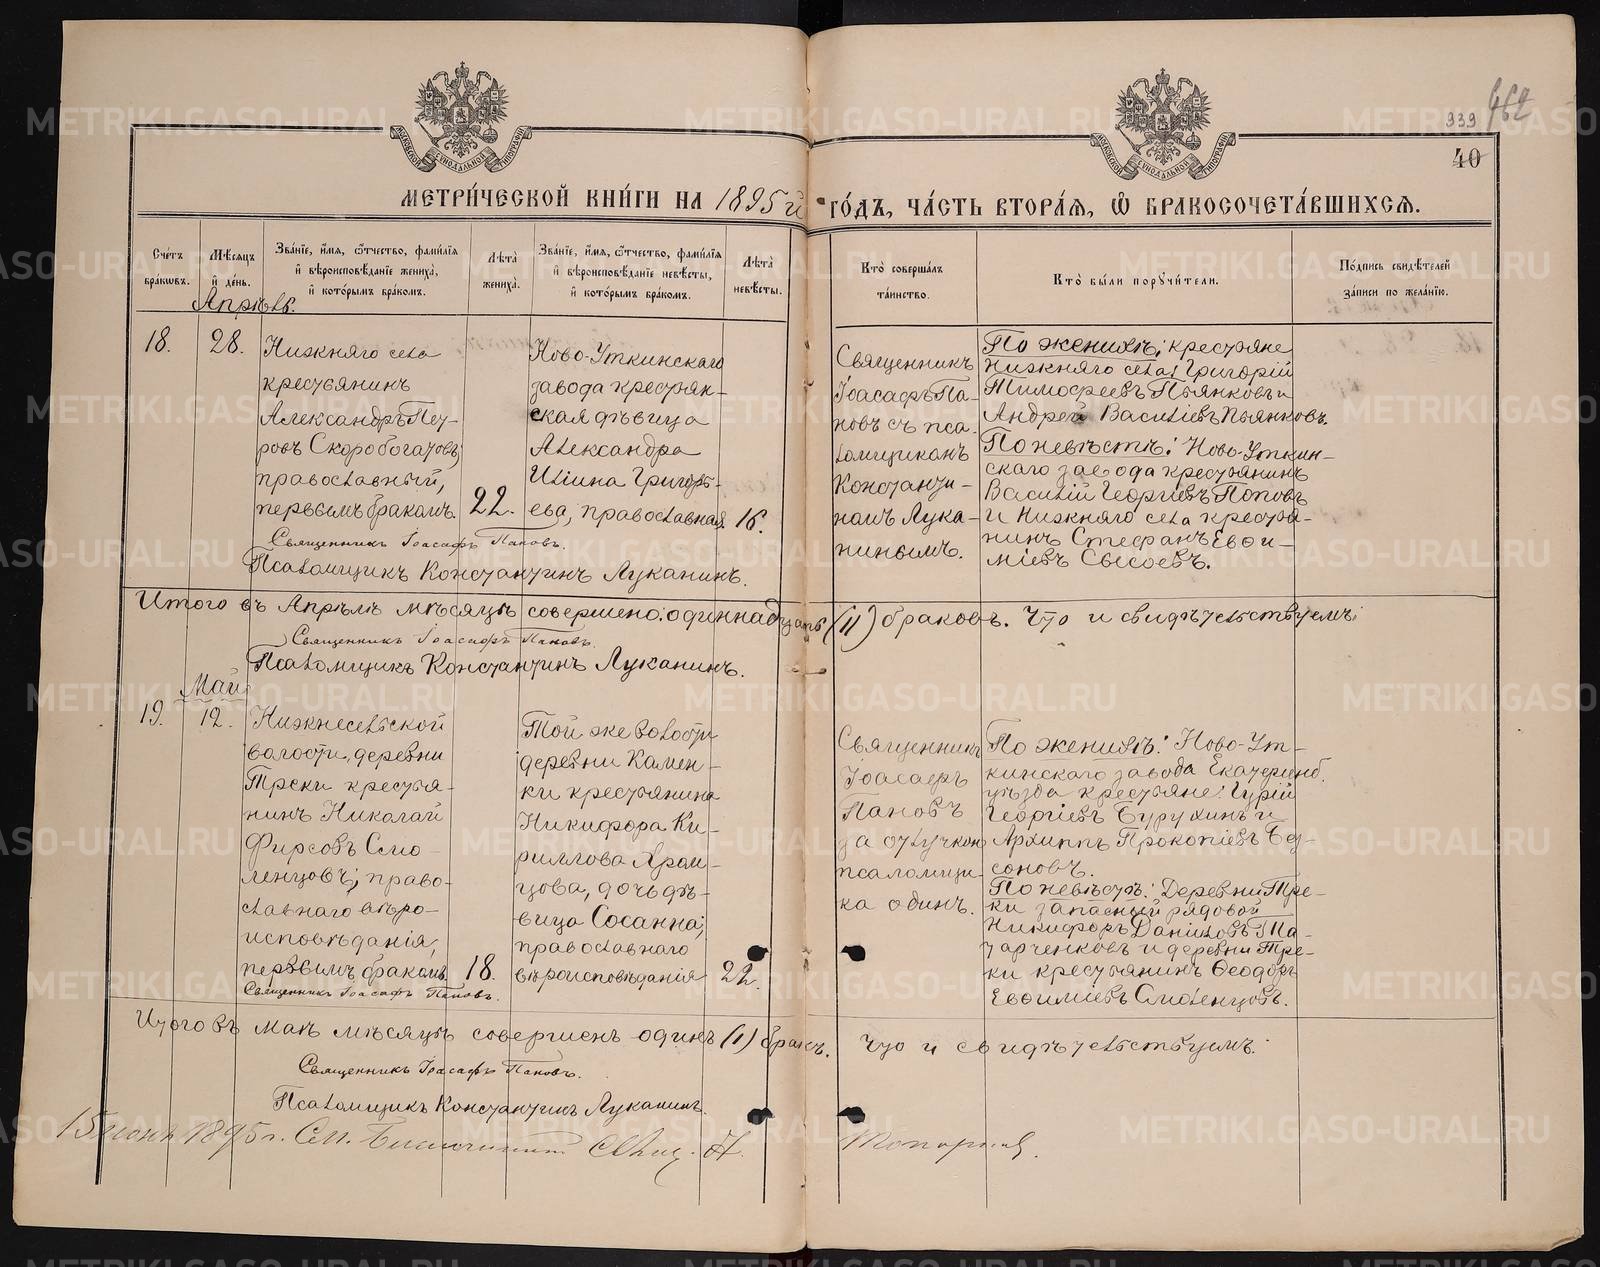 339 462
40
МЕТРИ́ЧЕСКОЙ КНИ́ГИ НА 1895 й ГО́ДЪ, ЧА́СТЬ ВТОРА́Я, Ѡ҆ БРАКОСОЧЕТА́ВШИХСЯ.
Сче́тъ бра́ковъ.
Мѣ́сяцъ и҆ де́нь.
Зва́нїе, и҆́мя, ѻ҆́тчество, фами́лїя и҆ вѣроисповѣ́данїе жениха̀, и҆ кото́рымъ бра́комъ.
Лѣ́та жениха̀.
Зва́нїе, и҆́мя, ѻ҆́тчество, фами́лїя и҆ вѣроисповѣ́данїе невѣ́сты, и҆ кото́рымъ бра́комъ.
Лѣ́та невѣ́сты.
Кто̀ соверша́лъ та́инство.
Кто̀ бы́ли порꙋчи́тели.
По́дпись свидѣ́телей за́писи по жела́нїю.
Апрѣль.
18.
28.
Нижняго села
крестьянинъ
Александръ Пет-
ровъ Скоробогатовъ,
православный,
первымъ бракомъ.
22.
Ново-Уткинскаго
завода крестьян-
ская дѣвица
Александра
Ильина Григорь-
ева, православная
16.
Священникъ
Іоасафъ Па-
новъ съ пса-
ломщикомъ
Константи-
номъ Лука-
нинымъ.
По женихѣ: крестьяне
Нижняго села: Григорій
Тимофеевъ Пьянковъ и
Андрей Василіевъ Пьянковъ.
По невѣстѣ: Ново-Уткин-
скаго завода крестьянинъ
Василій Георгіевъ Поповъ
и Нижняго села крестья-
нинъ Стефанъ Евѳи-
міевъ Сысоевъ.
Священникъ Іоасафъ Пановъ.
Псаломщикъ Константинъ Луканинъ.
Итого въ Апрѣлѣ мѣсяцѣ совершено: одиннадцать (11) браковъ. Что и свидѣтельствуемъ:
Священникъ Іоасафъ Пановъ.
Псаломщикъ Константинъ Луканинъ.
Май
19.
12.
Нижнесельской
волости, деревни
Трёки крестья-
нинъ Николай
Фирсовъ Смо-
ленцовъ, право-
славнаго вѣро-
исповѣданія,
первымъ бракомъ.
18.
Той же волости
деревни Камен-
ки крестьянина
Никифора Ки-
риллова Храм-
цова, дочь дѣ-
вица Сосанна,
православнаго
вѣроисповѣданія
22.
Священникъ
Іоасафъ
Пановъ
за отлучкою
псаломщи-
ка одинъ.
По женихѣ: Ново-Ут-
кинскаго завода Екатеринб.
уѣзда крестьяне: Гурій
Георгіевъ Бурухинъ и
Архиппъ Прокопіевъ Бед-
соновъ.
По невѣстѣ: Деревни Трё-
ки запасный рядовой
Никифоръ Даниловъ Та-
тарченковъ и деревни Трё-
ки крестьянинъ Ѳеодоръ
Евѳиміевъ Смоленцовъ.
Священникъ Іоасафъ Пановъ.
Итого въ маѣ мѣсяцѣ совершенъ одинъ (1) бракъ. Что и свидѣтельствуемъ:
Священникъ Іоасафъ Пановъ.
Псаломщикъ Константинъ Луканинъ.
15 іюня 1895 г. См. Благочинный Свящ. А. Топорковъ.
METRIKI.GASO-URAL.RU